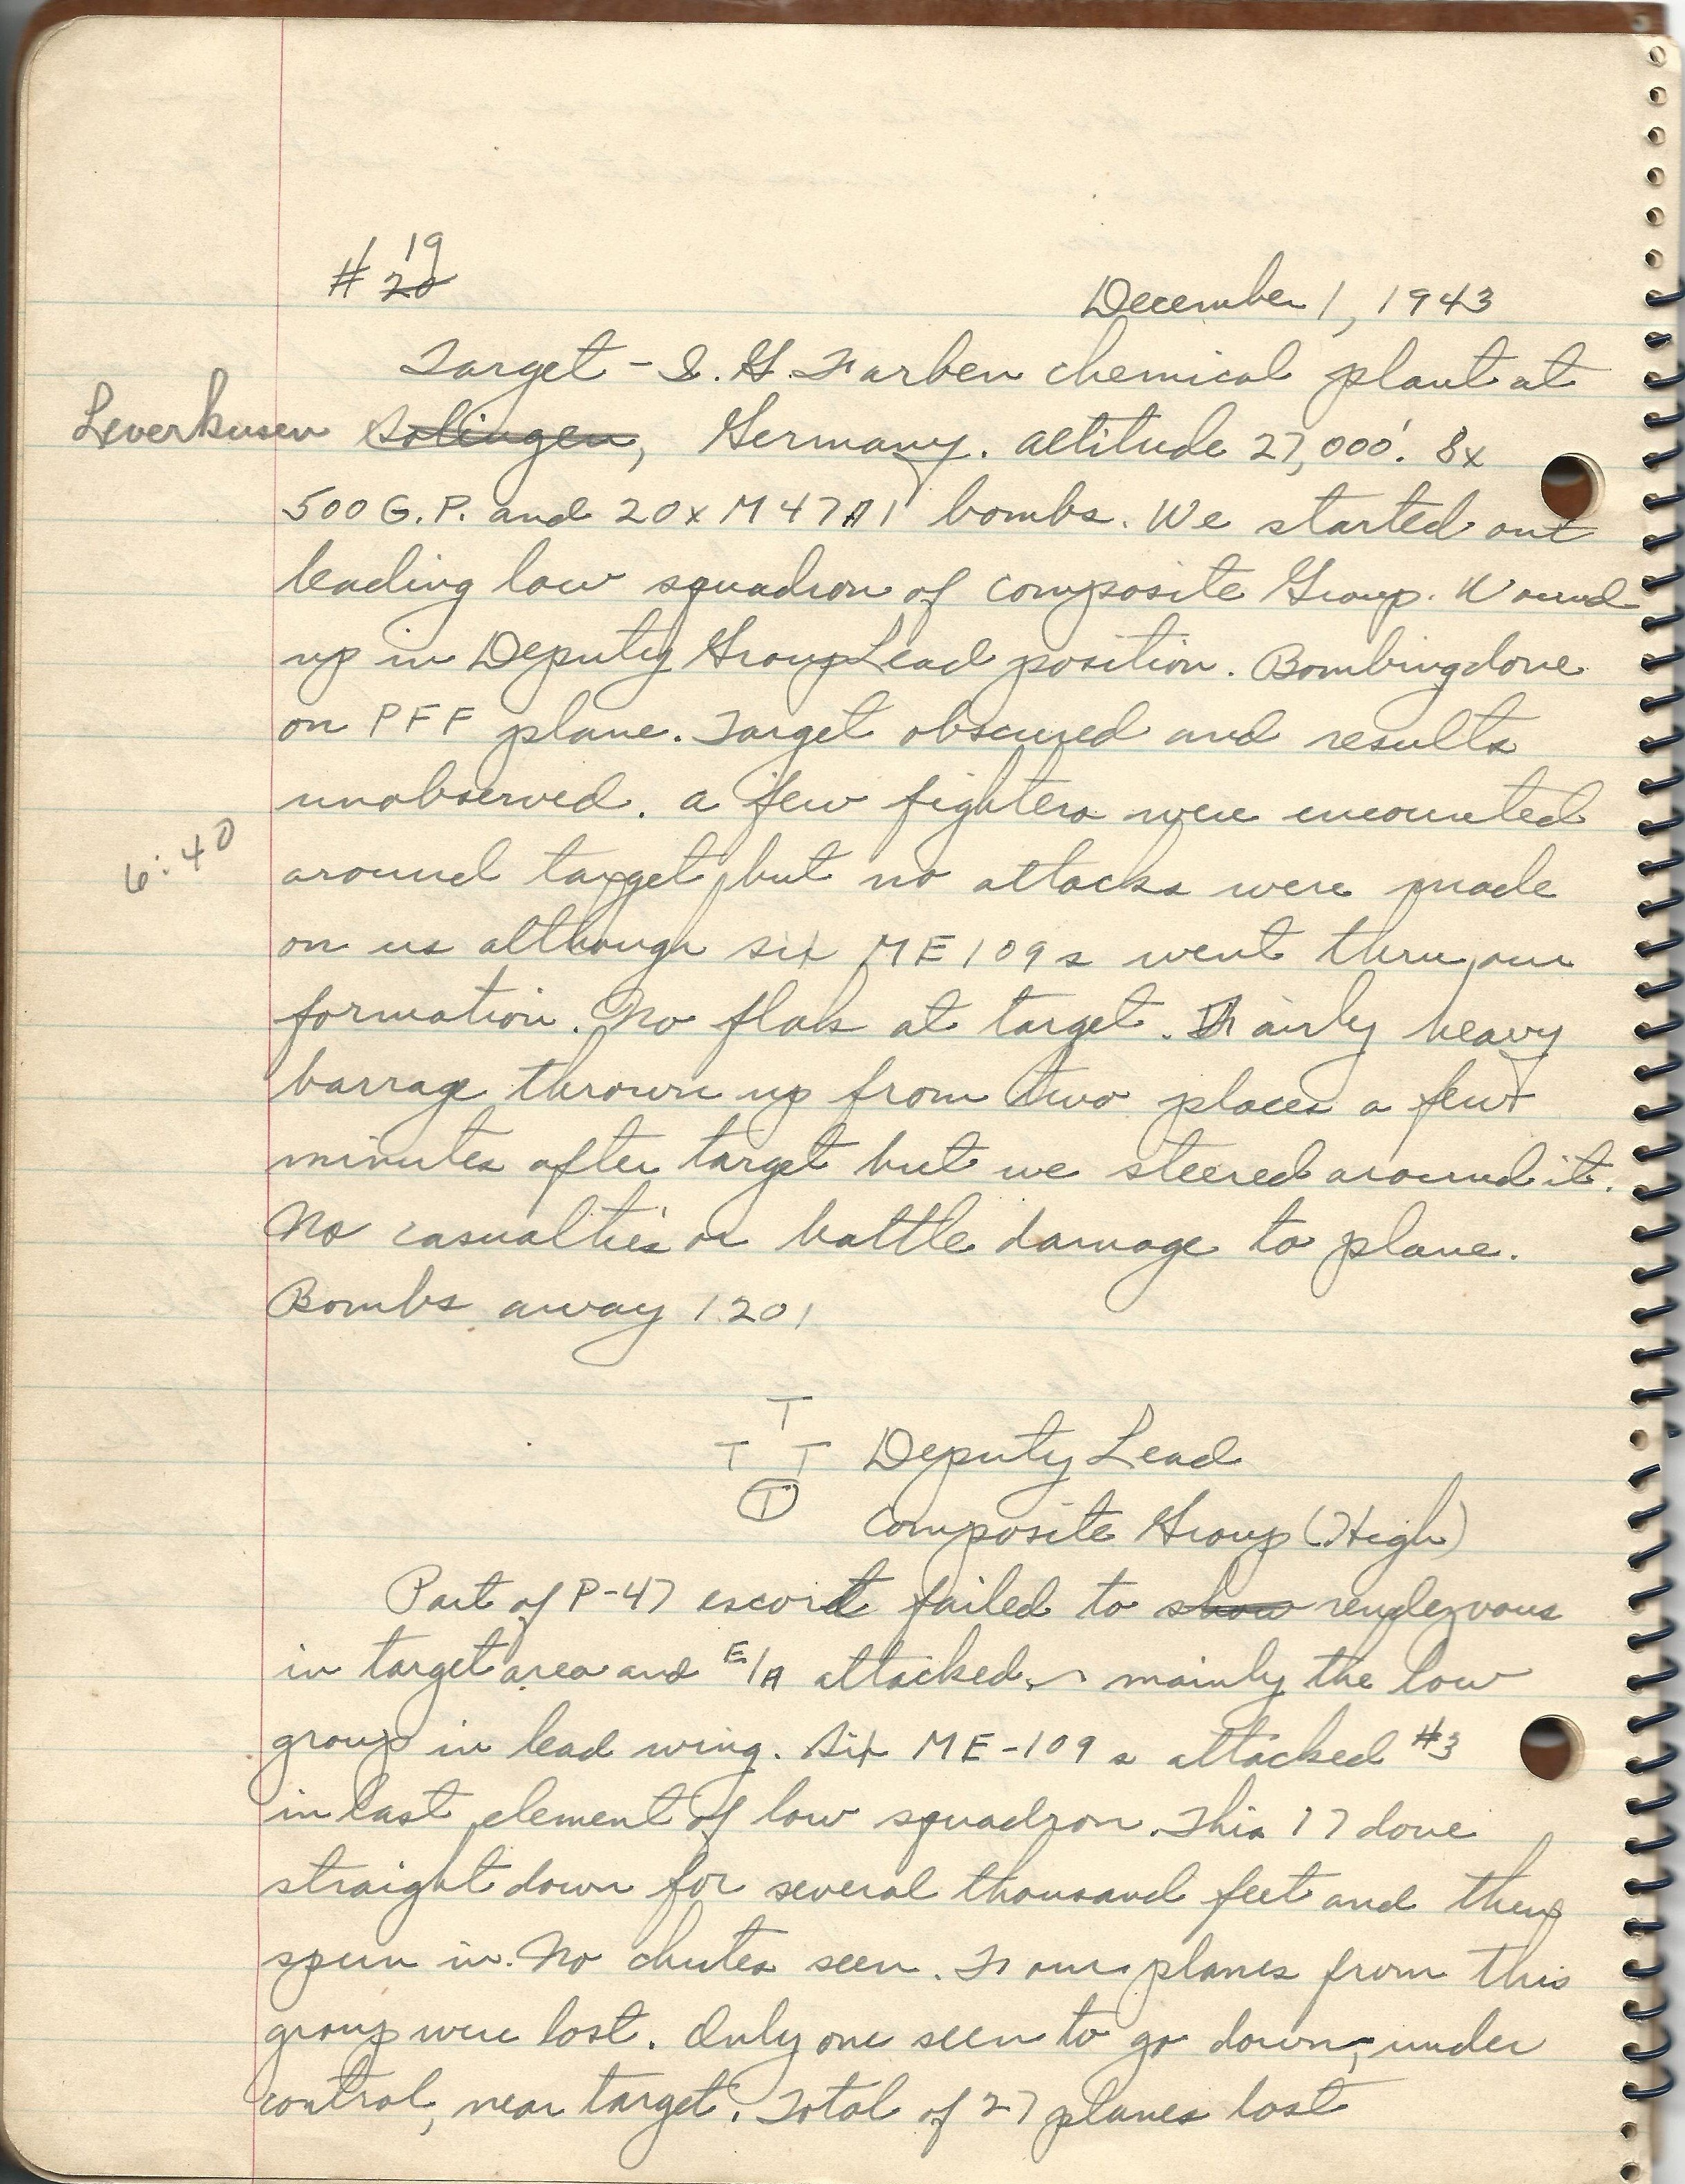 19
# 20
December 1, 1943
Target - I. G. Farben chemical plant at
Leverkusen Solingen, Germany. altitude 27,000'. 8x
500 G.P. and 20x M47A1 bombs. We started out
leading low squadron of composite Group. Wound
up in Deputy Group Lead position. Bombing done
on PFF plane. Target obscured and results
unobserved. a few fighters were encounted
6:40
around target, but no attacks were made
on us although six ME109s went thru our
formation. No flak at target. Fairly heavy
barrage thrown up from two places a few
minutes after target but we steered around it.
No casualties or battle damage to plane.
Bombs away 1201
T
T T Deputy Lead
T
Composite Group (High)
Part of P-47 escort failed to show rendezvous
in target area and E/A attacked, mainly the low
group in lead wing. Six ME-109s attacked #3
in last element of low squadron. This 17 dove
straight down for several thousand feet and then
spun in. No chutes seen. Four planes from this
group were lost. Only one seen to go down, under
control, near target. Total of 27 planes lost